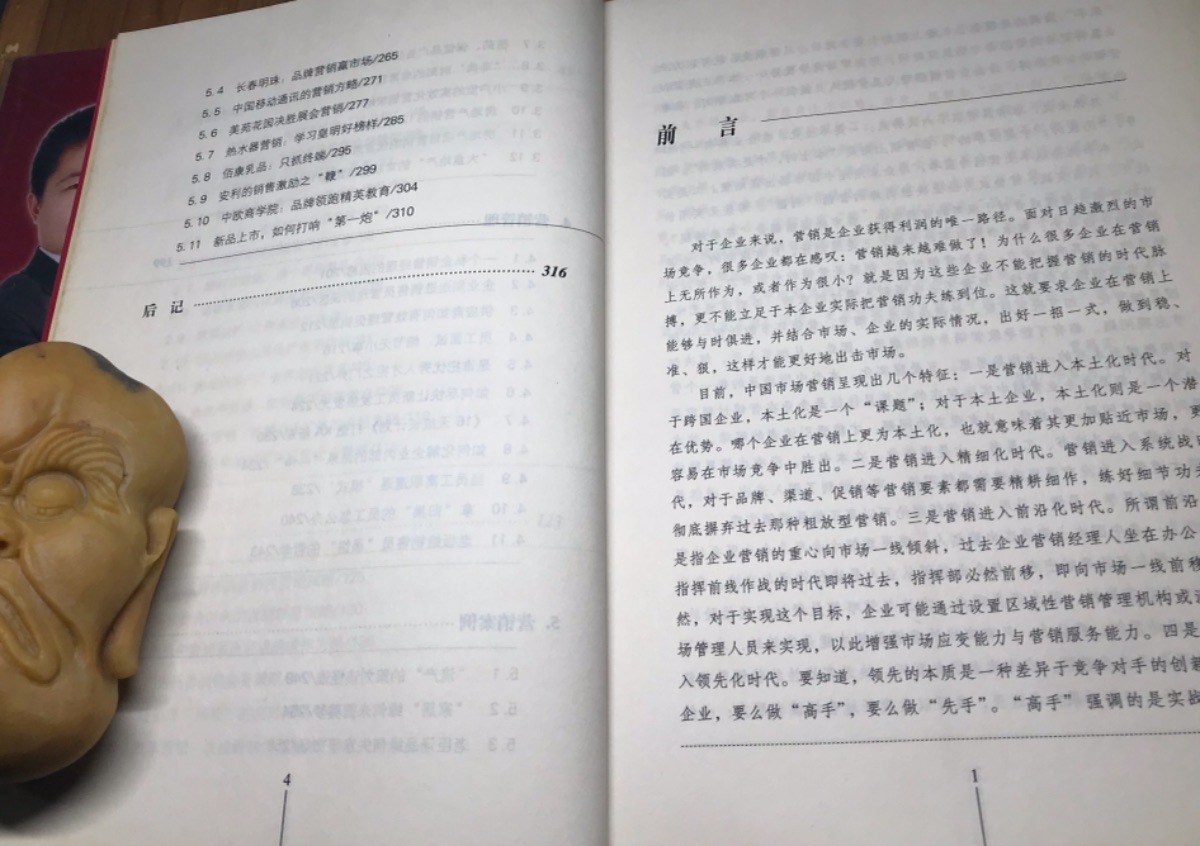 5.4 长春明珠：品牌营销赢市场/265
5.5 中国移动通讯的营销方略/271
5.6 美苑花园决胜展会营销/277
5.7 热水器营销：学习皇明好榜样/285
5.8 佰康乳品：只抓终端/295
5.9 安利的销售激励之“鞭”/299
5.10 中欧商学院：品牌领跑精英教育/304
5.11 新品上市，如何打响“第一炮”/310
后记 316
4
前言
对于企业来说，营销是企业获得利润的唯一路径。面对日趋激烈的市
场竞争，很多企业都在感叹：营销越来越难做了！为什么很多企业在营销
上无所作为，或者作为很小？就是因为这些企业不能把握营销的时代脉
搏，更不能立足于本企业实际把营销功夫练到位。这就要求企业在营销上
能够与时俱进，并结合市场、企业的实际情况，出好一招一式，做到稳、
准、狠，这样才能更好地出击市场。
目前，中国市场营销呈现出几个特征：一是营销进入本土化时代。对
于跨国企业，本土化是一个“课题”；对于本土企业，本土化则是一个潜
在优势。哪个企业在营销上更为本土化，也就意味着其更加贴近市场，更
容易在市场竞争中胜出。二是营销进入精细化时代。营销进入系统战时
代，对于品牌、渠道、促销等营销要素都需要精耕细作，练好细节功夫
彻底摒弃过去那种粗放型营销。三是营销进入前沿化时代。所谓前沿
是指企业营销的重心向市场一线倾斜，过去企业营销经理人坐在办公
指挥前线作战的时代即将过去，指挥部必然前移，即向市场一线前移
然，对于实现这个目标，企业可能通过设置区域性营销管理机构或
场管理人员来实现，以此增强市场应变能力与营销服务能力。四是
入领先化时代。要知道，领先的本质是一种差异于竞争对手的创新
企业，要么做“高手”，要么做“先手”。“高手”强调的是实战
1